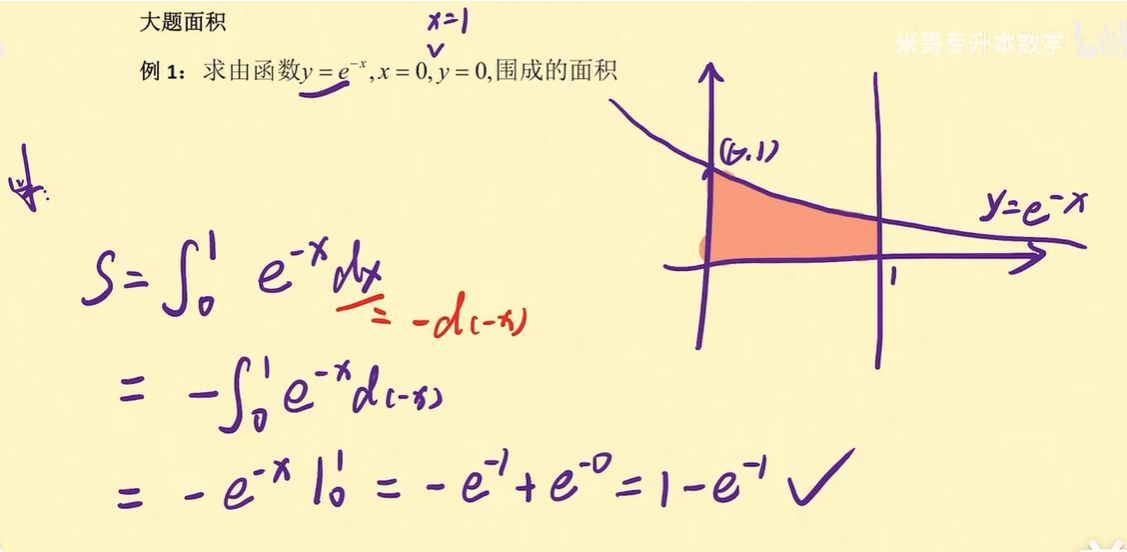 大题面积
x=1
米哥专升本数学
例 1：求由函数y = e^{-x}, x = 0, y = 0,围成的面积
(0.1)
y=e^{-x}
S = ∫_0^1 e^{-x} dx
= -d(-x)
1
= -∫_0^1 e^{-x} d(-x)
= -e^{-x} |_0^1 = -e^{-1} + e^{-0} = 1 - e^{-1} ✓